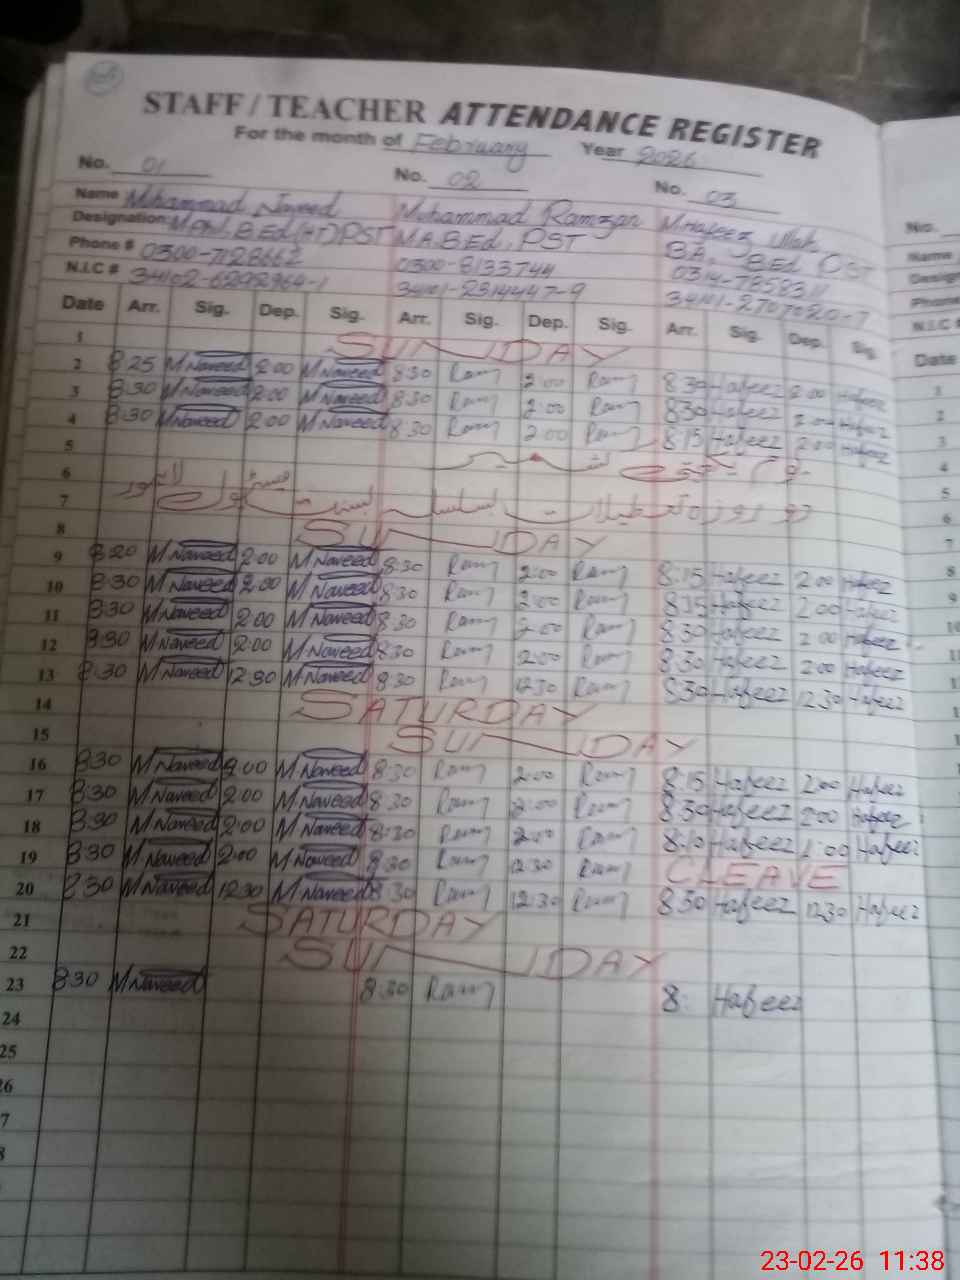 STAFF / TEACHER ATTENDANCE REGISTER
For the month of February Year 2026
No. 01 No. 02 No. 03
Name Muhammad Naveed Muhammad Ramzan M Hafeez Ullah
Designation: B.Ed (HT) PST M.A. B.Ed, PST BA, B.Ed PST
Phone # 0300-7128662 0300-8133744
N.I.C # 34101-2314447-9
Date Arr. Sig. Dep. Sig. Arr. Sig. Dep. Sig. Arr. Sig. Dep. Sig.
1 SUNDAY
2 8:25 M Naveed 2:00 M Naveed 8:30 Ram 2:00 Ram 8:30 Hafeez 2:00 Hafeez
3 8:30 M Naveed 2:00 M Naveed 8:30 Ram 2:00 Ram 8:30 Hafeez 2:00 Hafeez
4 8:30 M Naveed 2:00 M Naveed 8:30 Ram 2:00 Ram 8:15 Hafeez 2:00 Hafeez
5
6
7
8 SUNDAY
9 8:20 M Naveed 2:00 M Naveed 8:30 Ram 2:00 Ram 8:15 Hafeez 2:00 Hafeez
10 8:30 M Naveed 2:00 M Naveed 8:30 Ram 2:00 Ram 8:15 Hafeez 2:00 Hafeez
11 8:30 M Naveed 2:00 M Naveed 8:30 Ram 2:00 Ram 8:30 Hafeez 2:00 Hafeez
12 8:30 M Naveed 2:00 M Naveed 8:30 Ram 2:00 Ram 8:30 Hafeez 2:00 Hafeez
13 8:30 M Naveed 12:30 M Naveed 8:30 Ram 12:30 Ram 8:30 Hafeez 12:30 Hafeez
14 SATURDAY
15 SUNDAY
16 8:30 M Naveed 2:00 M Naveed 8:30 Ram 2:00 Ram 8:15 Hafeez 2:00 Hafeez
17 8:30 M Naveed 2:00 M Naveed 8:30 Ram 2:00 Ram 8:30 Hafeez 2:00 Hafeez
18 8:30 M Naveed 2:00 M Naveed 8:30 Ram 2:00 Ram 8:10 Hafeez 2:00 Hafeez
19 8:30 M Naveed 2:00 M Naveed 8:30 Ram 12:30 Ram C LEAVE
20 8:30 M Naveed 12:30 M Naveed 8:30 Ram 12:30 Ram 8:30 Hafeez 12:30 Hafeez
21 SATURDAY
22 SUNDAY
23 8:30 M Naveed 8:30 Ram 8: Hafeez
24
25
26
7
8
No.
Name
Phone
N.I.C #
Date
1
2
3
4
5
6
7
8
9
10
23-02-26 11:38